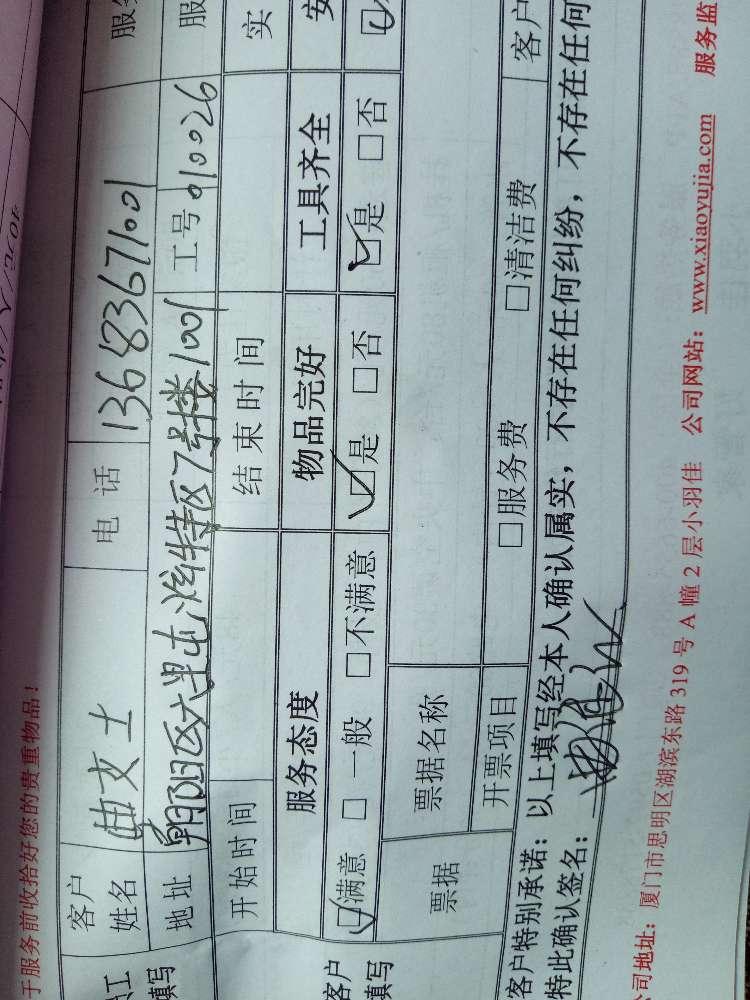 于服务前收拾好您的贵重物品！
客户姓名 曲女士 电话 13683671001 服
地址 朝阳区六里屯 特区7号楼1001 工号 010026 服
填写
开始时间 结束时间 实
服务态度 物品完好 工具齐全 安
客户填写
☑满意 □一般 □不满意 ☑是 □否 ☑是 □否
票据 票据名称
开票项目 □服务费 □清洁费 客户
客户特别承诺：以上填写经本人确认属实，不存在任何纠纷，不存在任何
特此确认签名：
公司地址：厦门市思明区湖滨东路319号A幢2层小羽佳 公司网站：www.xiaoyujia.com 服务监